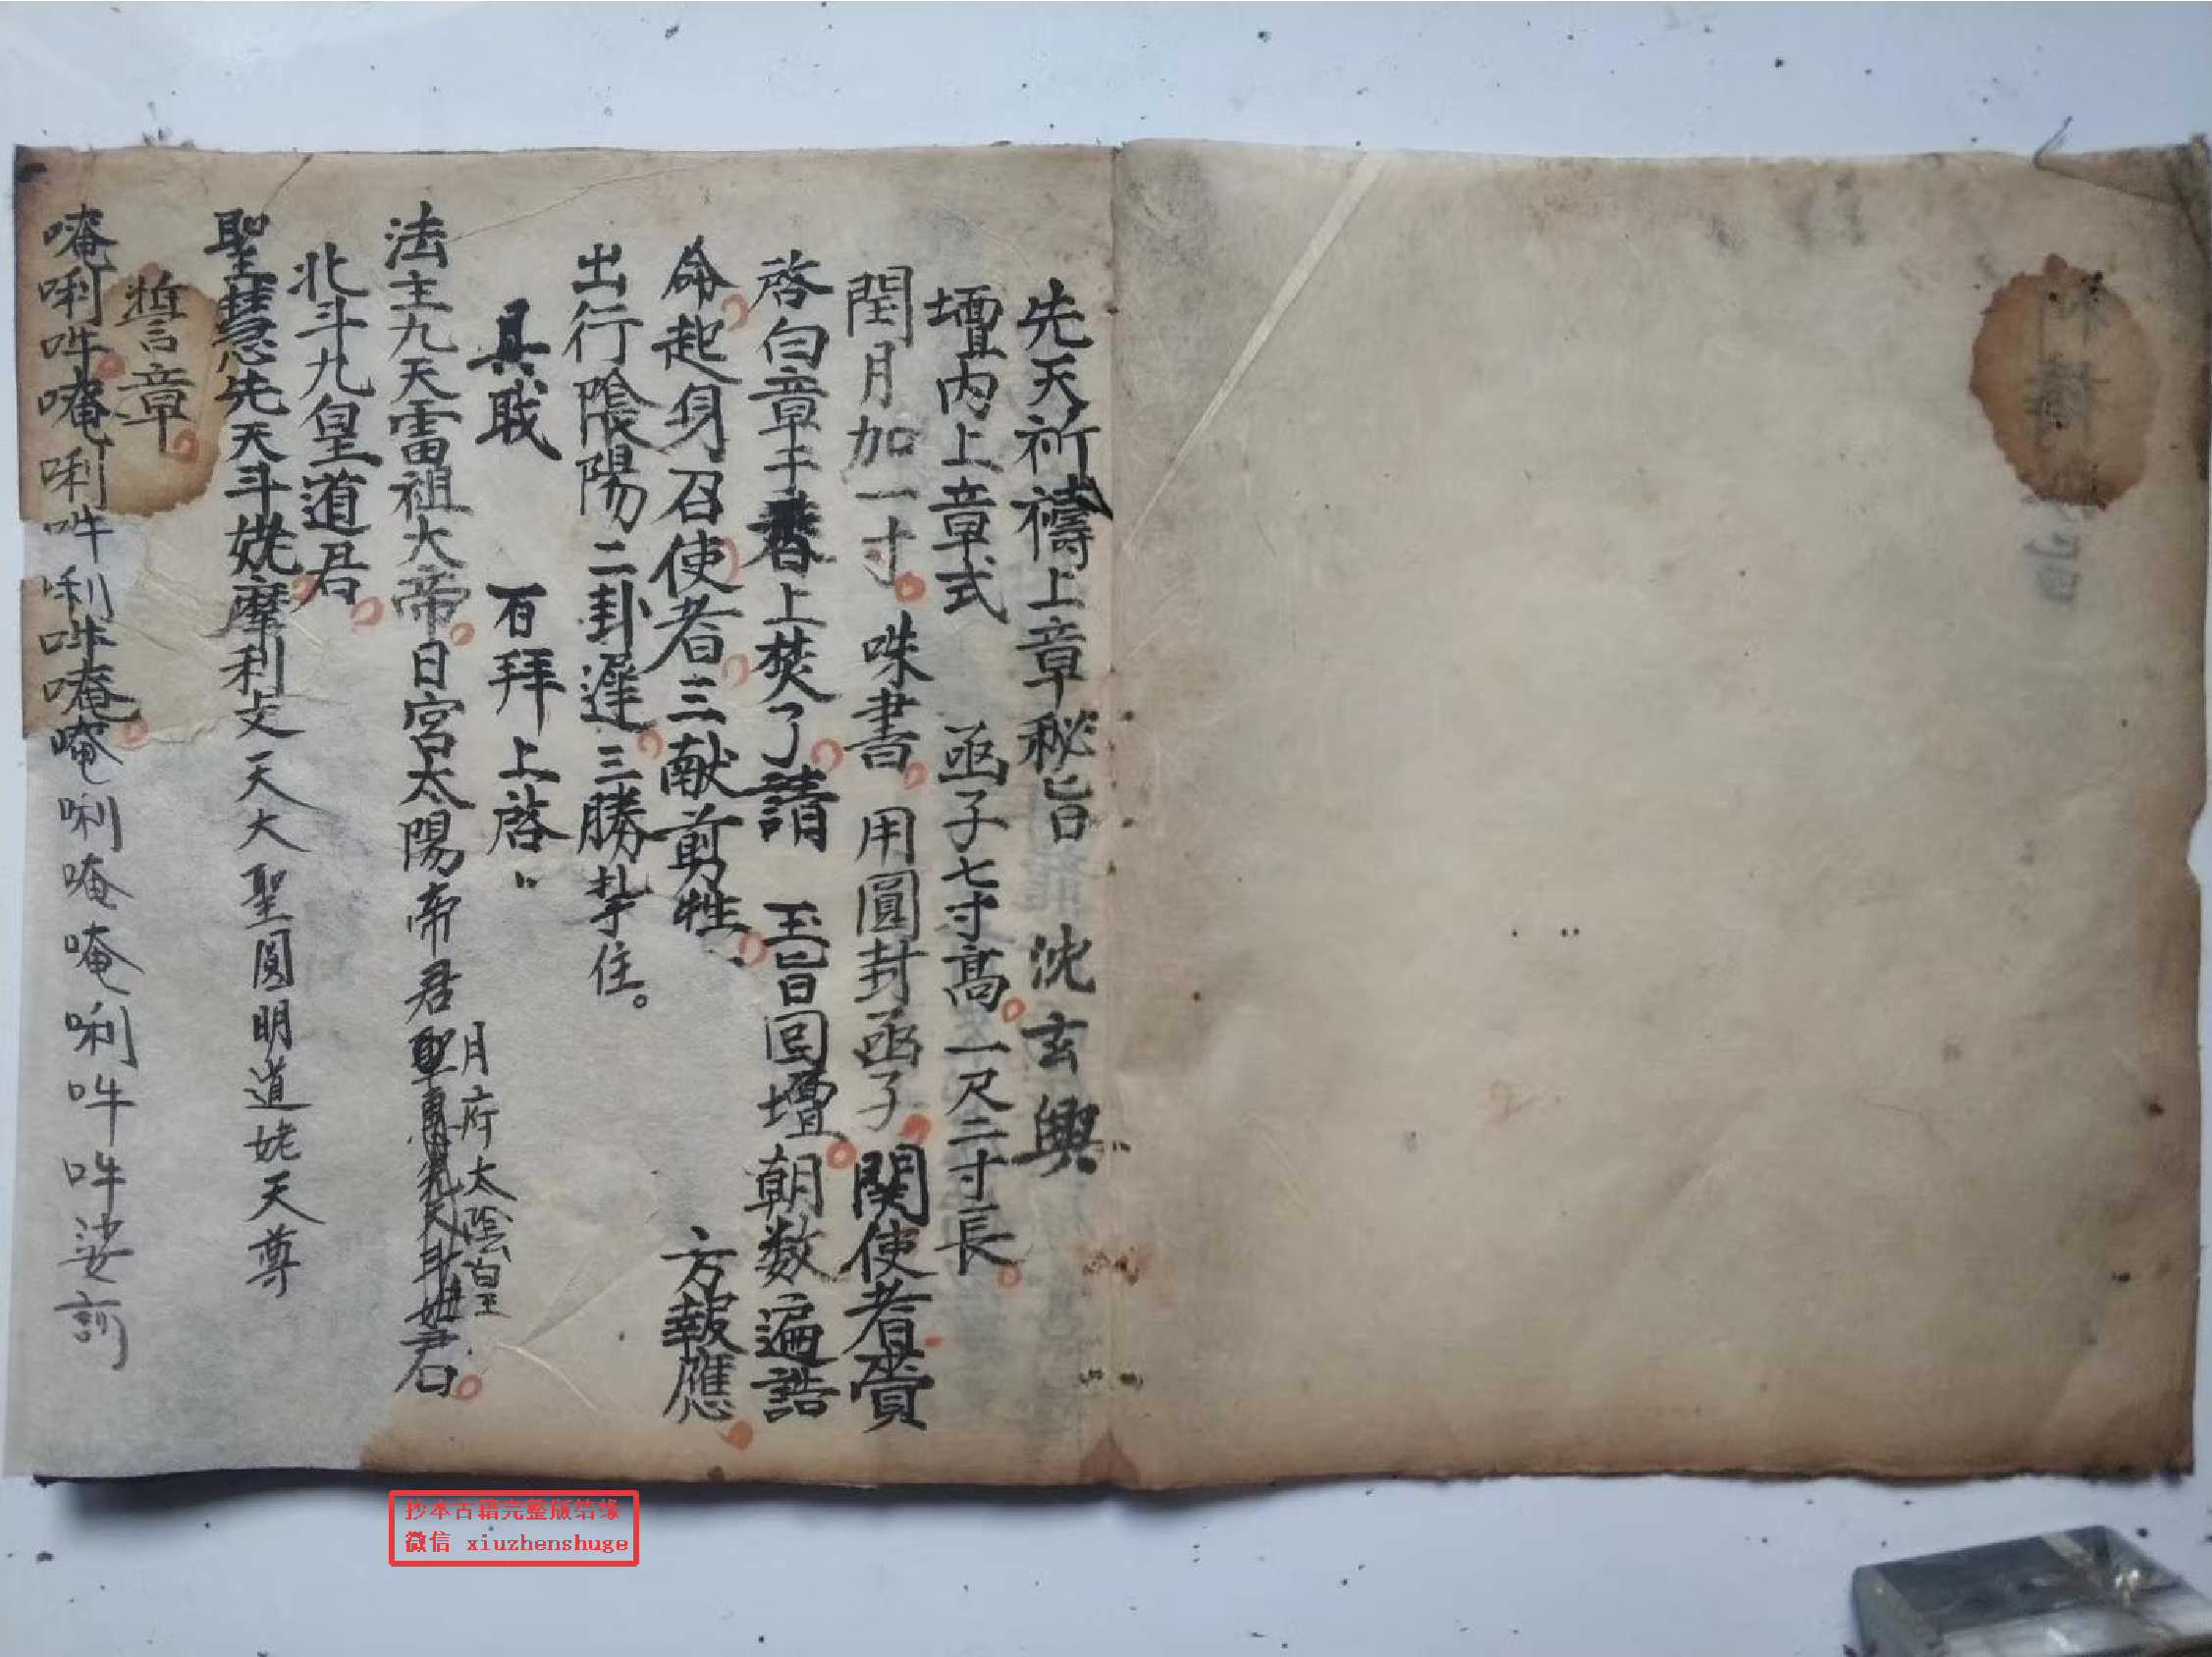 先天祈禱上章秘旨　沈玄興
壇內上章式　函子七寸高。一尺二寸長。
閏月加一寸。硃書。用圓封函子。関使者賫
啓白章于香上焚了。請　玉旨回壇。朝数遍誥
命。起身召使者。三献剪牲。方報應。
出行陰陽二卦遲。三勝扗住。
具戝　百拜上啓
法主九天雷祖大帝。日宮太陽帝君
月府太陰皇君。
北斗九皇道君。
聖慧先天斗姥摩利攴天大聖圓明道姥天尊
誓章。
唵唎吽唵唎吽唎吽唵唵唎唵唵唎吽吽娑訶
抄本古籍完整版结缘
微信 xiuzhenshuge